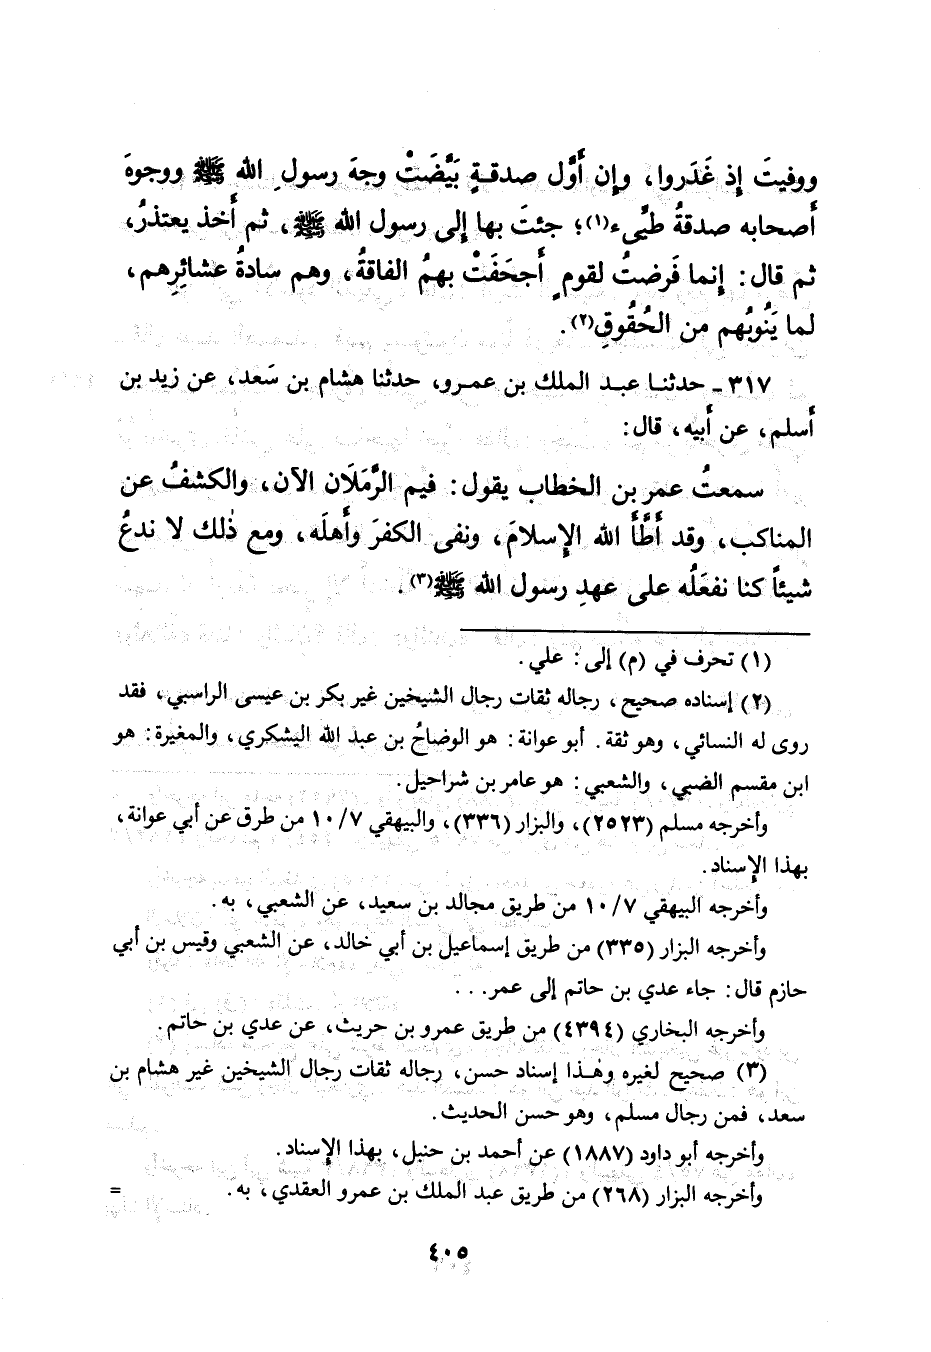 ووفيتَ إذ غَدَروا، وإن أَوَّل صدقةٍ بَيَّضَتْ وجهَ رسولِ الله ﷺ ووجوهَ
أَصحابه صدقةُ طيِّىء(١)؛ جئتَ بها إلى رسول الله ﷺ، ثم أَخذ يعتذرُ،
ثم قال: إنما فَرضتُ لقومٍ أَجحَفَتْ بهمُ الفاقةُ، وهم سادةُ عشائِرِهم،
لما يَنُوبُهم من الحُقُوقِ(٢).
٣١٧ ـ حدثنا عبد الملك بن عمرو، حدثنا هشام بن سَعد، عن زيد بن
أَسلم، عن أَبيه، قال:
سمعتُ عمر بن الخطاب يقول: فيم الرَّمَلَان الآن، والكشفُ عن
المناكب، وقد أَطَّأَ الله الإسلامَ، ونفى الكفرَ وأَهلَه، ومع ذٰلك لا ندعُ
شيئاً كنا نفعَلُه على عهدِ رسول الله ﷺ(٣).
(١) تحرف في (م) إلى: علي.
(٢) إسناده صحيح، رجاله ثقات رجال الشيخين غير بكر بن عيسى الراسبي، فقد
روى له النسائي، وهو ثقة. أبو عوانة: هو الوضاحُ بن عبد الله اليشكري، والمغيرة: هو
ابن مقسم الضبي، والشعبي: هو عامر بن شراحيل.
وأخرجه مسلم (٢٥٢٣)، والبزار (٣٣٦)، والبيهقي ١٠/٧ من طرق عن أبي عوانة،
بهذا الإسناد.
وأخرجه البيهقي ١٠/٧ من طريق مجالد بن سعيد، عن الشعبي، به.
وأخرجه البزار (٣٣٥) من طريق إسماعيل بن أبي خالد، عن الشعبي وقيس بن أبي
حازم قال: جاء عدي بن حاتم إلى عمر...
وأخرجه البخاري (٤٣٩٤) من طريق عمرو بن حريث، عن عدي بن حاتم.
(٣) صحيح لغيره وهٰذا إسناد حسن، رجاله ثقات رجال الشيخين غير هشام بن
سعد، فمن رجال مسلم، وهو حسن الحديث.
وأخرجه أبو داود (١٨٨٧) عن أحمد بن حنبل، بهذا الإسناد.
وأخرجه البزار (٢٦٨) من طريق عبد الملك بن عمرو العقدي، به. =
٤٠٥